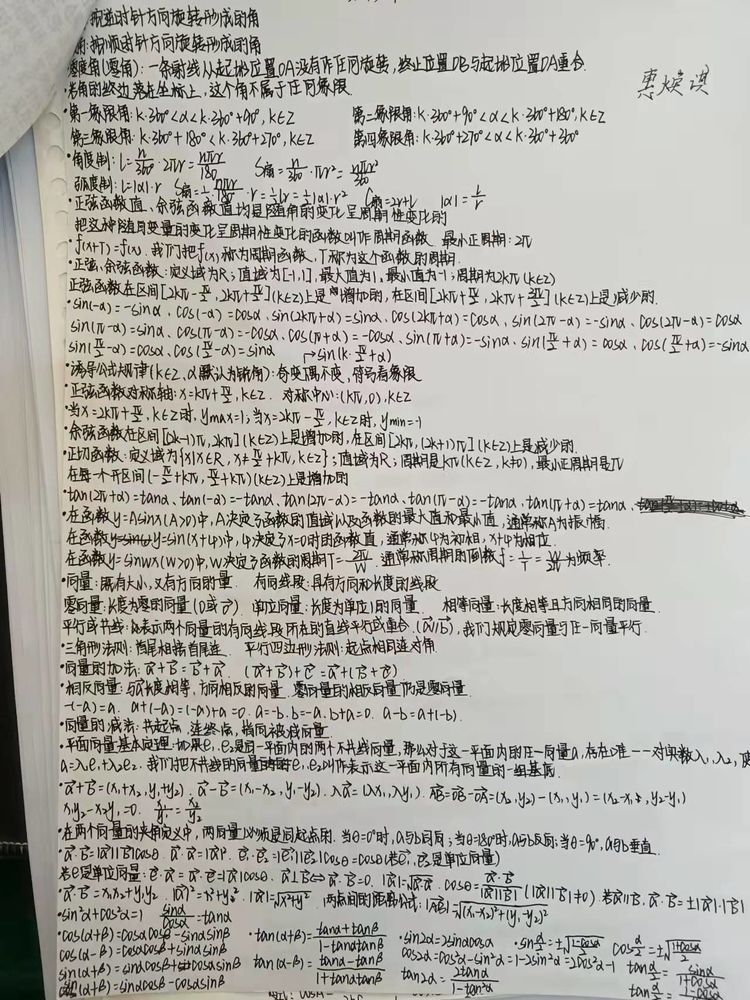 按逆时针方向旋转形成的角
角:按顺时针方向旋转形成的角
零度角(零角):一条射线从起始位置OA没有作任何旋转,终止位置OB与起始位置OA重合.
·若角的终边落在坐标上,这个角不属于任何象限.
·第一象限角:k·360°<α<k·360°+90°,k∈Z 第二象限角:k·360°+90°<α<k·360°+180°,k∈Z
第三象限角:k·360°+180°<k·360°+270°,k∈Z 第四象限角:k·360°+270°<α<k·360°+360°
·角度制:l=n/360·2πr=nπr/180 S扇=n/360·πr²=nπr²/360
弧度制:l=|α|·r S扇=1/2·nπr/180·r=1/2lr=1/2|α|·r² C扇=2r+l |α|=l/r
·正弦函数值、余弦函数值均是随角的变化呈周期性变化的
把这种随自变量的变化呈周期性变化的函数叫作周期函数 最小正周期:2π
·f(x+T)=f(x).我们把f(x)称为周期函数,T称为这个函数的周期.
·正弦、余弦函数:定义域为R;值域为[-1,1],最大值为1,最小值为-1;周期为2kπ(k∈Z)
正弦函数在区间[2kπ-π/2,2kπ+π/2](k∈Z)上是增加的,在区间[2kπ+π/2,2kπ+3π/2](k∈Z)上是减少的.
·sin(-α)=-sinα、cos(-α)=cosα、sin(2kπ+α)=sinα、cos(2kπ+α)=cosα,sin(2π-α)=-sinα、cos(2π-α)=cosα
sin(π-α)=sinα、cos(π-α)=-cosα、cos(π+α)=-cosα、sin(π+α)=-sinα、sin(π/2+α)=cosα、cos(π/2+α)=-sinα
sin(π/2-α)=cosα、cos(π/2-α)=sinα →sin(k·π/2+α)
·诱导公式规律(k∈Z、α默认为锐角):奇变偶不变,符号看象限
·正弦函数对称轴:x=kπ+π/2,k∈Z. 对称中心:(kπ,0),k∈Z
·当x=2kπ+π/2,k∈Z时,ymax=1;当x=2kπ-π/2,k∈Z时,ymin=-1
·余弦函数在区间[(2k-1)π,2kπ](k∈Z)上是增加的,在区间[2kπ,(2k+1)π](k∈Z)上是减少的.
·正切函数:定义域为{x|x∈R,x≠π/2+kπ,k∈Z};值域为R;周期是kπ(k∈Z,k≠0),最小正周期是π
在每一个开区间(-π/2+kπ,π/2+kπ)(k∈Z)上是增加的
·tan(2π+α)=tanα、tan(-α)=-tanα、tan(2π-α)=-tanα、tan(π-α)=-tanα、tan(π+α)=tanα、
·在函数y=Asinx(A>0)中,A决定了函数的值域以及函数的最大值和最小值,通常称A为振幅.
在函数y=sin(x+φ)中,φ决定了x=0时的函数值,通常称φ为初相,x+φ为相位.
在函数y=sinwx(w>0)中,w决定了函数的周期T=2π/w.通常称周期的倒数f=1/T=w/2π为频率.
·向量:既有大小,又有方向的量. 有向线段:具有方向和长度的线段
零向量:长度为零的向量(0或0→). 单位向量:长度为单位1的向量. 相等向量:长度相等且方向相同的向量
平行或共线:表示两个向量的有向线段所在的直线平行或重合.(a→//b→),我们规定零向量与任一向量平行.
·三角形法则:首尾相接首尾连. 平行四边形法则:起点相同连对角
·向量的加法:a→+b→=b→+a→. (a→+b→)+c→=a→+(b→+c→)
·相反向量:与a→长度相等,方向相反的向量.零向量的相反向量仍是零向量
-(-a)=a. a+(-a)=(-a)+a=0. a=-b,b=-a,b+a=0. a-b=a+(-b).
·向量的减法:共起点,连终点,指向被减向量.
·平面向量基本定理:如果e₁,e₂是同一平面内的两个不共线向量,那么对于这一平面内的任一向量a,存在唯一一对实数λ₁,λ₂,使
a=λ₁e₁+λ₂e₂.我们把不共线的向量e₁,e₂叫作表示这一平面内所有向量的一组基底
·a→+b→=(x₁+x₂,y₁+y₂).a→-b→=(x₁-x₂,y₁-y₂).λa→=(λx₁,λy₁). AB→=OB→-OA→=(x₂,y₂)-(x₁,y₁)=(x₂-x₁,y₂-y₁)
x₁y₂-x₂y₁=0. x₁/y₁=x₂/y₂
·在两个向量的夹角定义中,两向量必须是同起点的.当θ=0°时,a与b同向;当θ=180°时,a与b反向;当θ=90°,a与b垂直.
·a→·b→=|a→||b→|cosθ. a→·a→=|a→|². e₁→·e₂→=|e₁→||e₂→|cosθ=cosθ(若e₁→,e₂→是单位向量)
若e是单位向量:e→·a→=a→·e→=|a→|cosθ. a→⊥b→⇔a→·b→=0. |a→|=√(a→·a→). cosθ=a→·b→/|a→||b→|(|a→||b→|≠0).若a→//b→,a→·b→=±|a→|·|b→|
·a→·b→=x₁x₂+y₁y₂ |a→|²=x²+y². |a→|=√(x²+y²). 两点间的距离公式:|AB→|=√((x₁-x₂)²+(y₁-y₂)²)
·sin²α+cos²α=1 sinα/cosα=tanα
·cos(α+β)=cosαcosβ-sinαsinβ ·tan(α+β)=(tanα+tanβ)/(1-tanαtanβ) ·sin2α=2sinαcosα ·sinα/2=±√((1-cosα)/2) cosα/2=±√((1+cosα)/2)
cos(α-β)=cosαcosβ+sinαsinβ cos2α=cos²α-sin²α=1-2sin²α=2cos²α-1
sin(α+β)=sinαcosβ+cosαsinβ tan(α-β)=(tanα-tanβ)/(1+tanαtanβ) tan2α=2tanα/(1-tan²α) tanα/2=sinα/(1+cosα)
sin(α+β)=sinαcosβ-cosαsinβ tanα/2=1-cosα